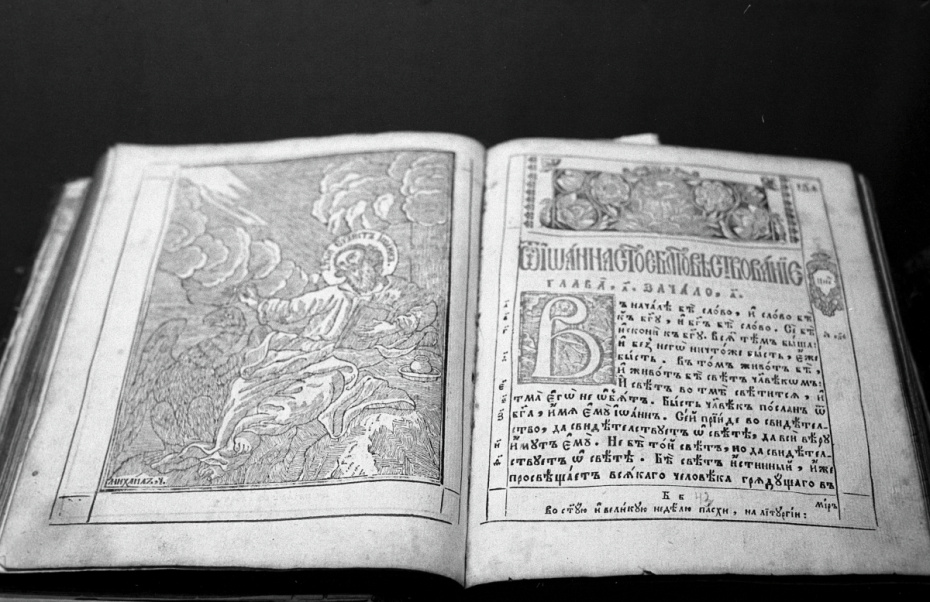 МИХАИЛЪ.Ч.
Ѿ ІѠА́ННА СТО́Е БЛГОВѢСТВОВА́НІЕ
ГЛАВА̀, А҃. ЗАЧА́ЛО, А҃.
Въ нача́лѣ бѣ̀ сло́во, и҆ сло́во бѣ̀
къ бг҃ꙋ, и҆ бг҃ъ бѣ̀ сло́во. Се́й бѣ̀
и҆сконѝ къ бг҃ꙋ. Всѧ̑ тѣ́мъ бы́ша:
и҆ без̾ негѡ̀ ничто́же бы́сть, є҆́же
бы́сть. Въ то́мъ живо́тъ бѣ̀,
и҆ живо́тъ бѣ̀ свѣ́тъ чл҃вѣ́кѡмъ:
И҆ свѣ́тъ во тмѣ̀ свѣ́титсѧ, и҆
тма̀ є҆гѡ̀ не ѡ҆б̾ѧ́тъ. Бы́сть чл҃вѣ́къ по́сланъ ѿ
бг҃а, и҆́мѧ є҆мꙋ̀ і҆ѡа́ннъ. Се́й прїи́де во свидѣ́тел-
ство, да свидѣ́телствꙋетъ ѡ҆ свѣ́тѣ, да всѝ вѣ́рꙋ
и҆́мꙋтъ є҆мꙋ̀. Не бѣ̀ то́й свѣ́тъ, но да свидѣ́тел-
ствꙋетъ ѡ҆ свѣ́тѣ. Бѣ̀ свѣ́тъ и҆́стинный, и҆́же
просвѣща́етъ всѧ́каго человѣ́ка грѧдꙋ́щаго въ
мі́ръ
42
Во ст҃ꙋ́ю и҆ вели́кꙋю недѣ́лю па́схи, на лїтꙋргі́и: